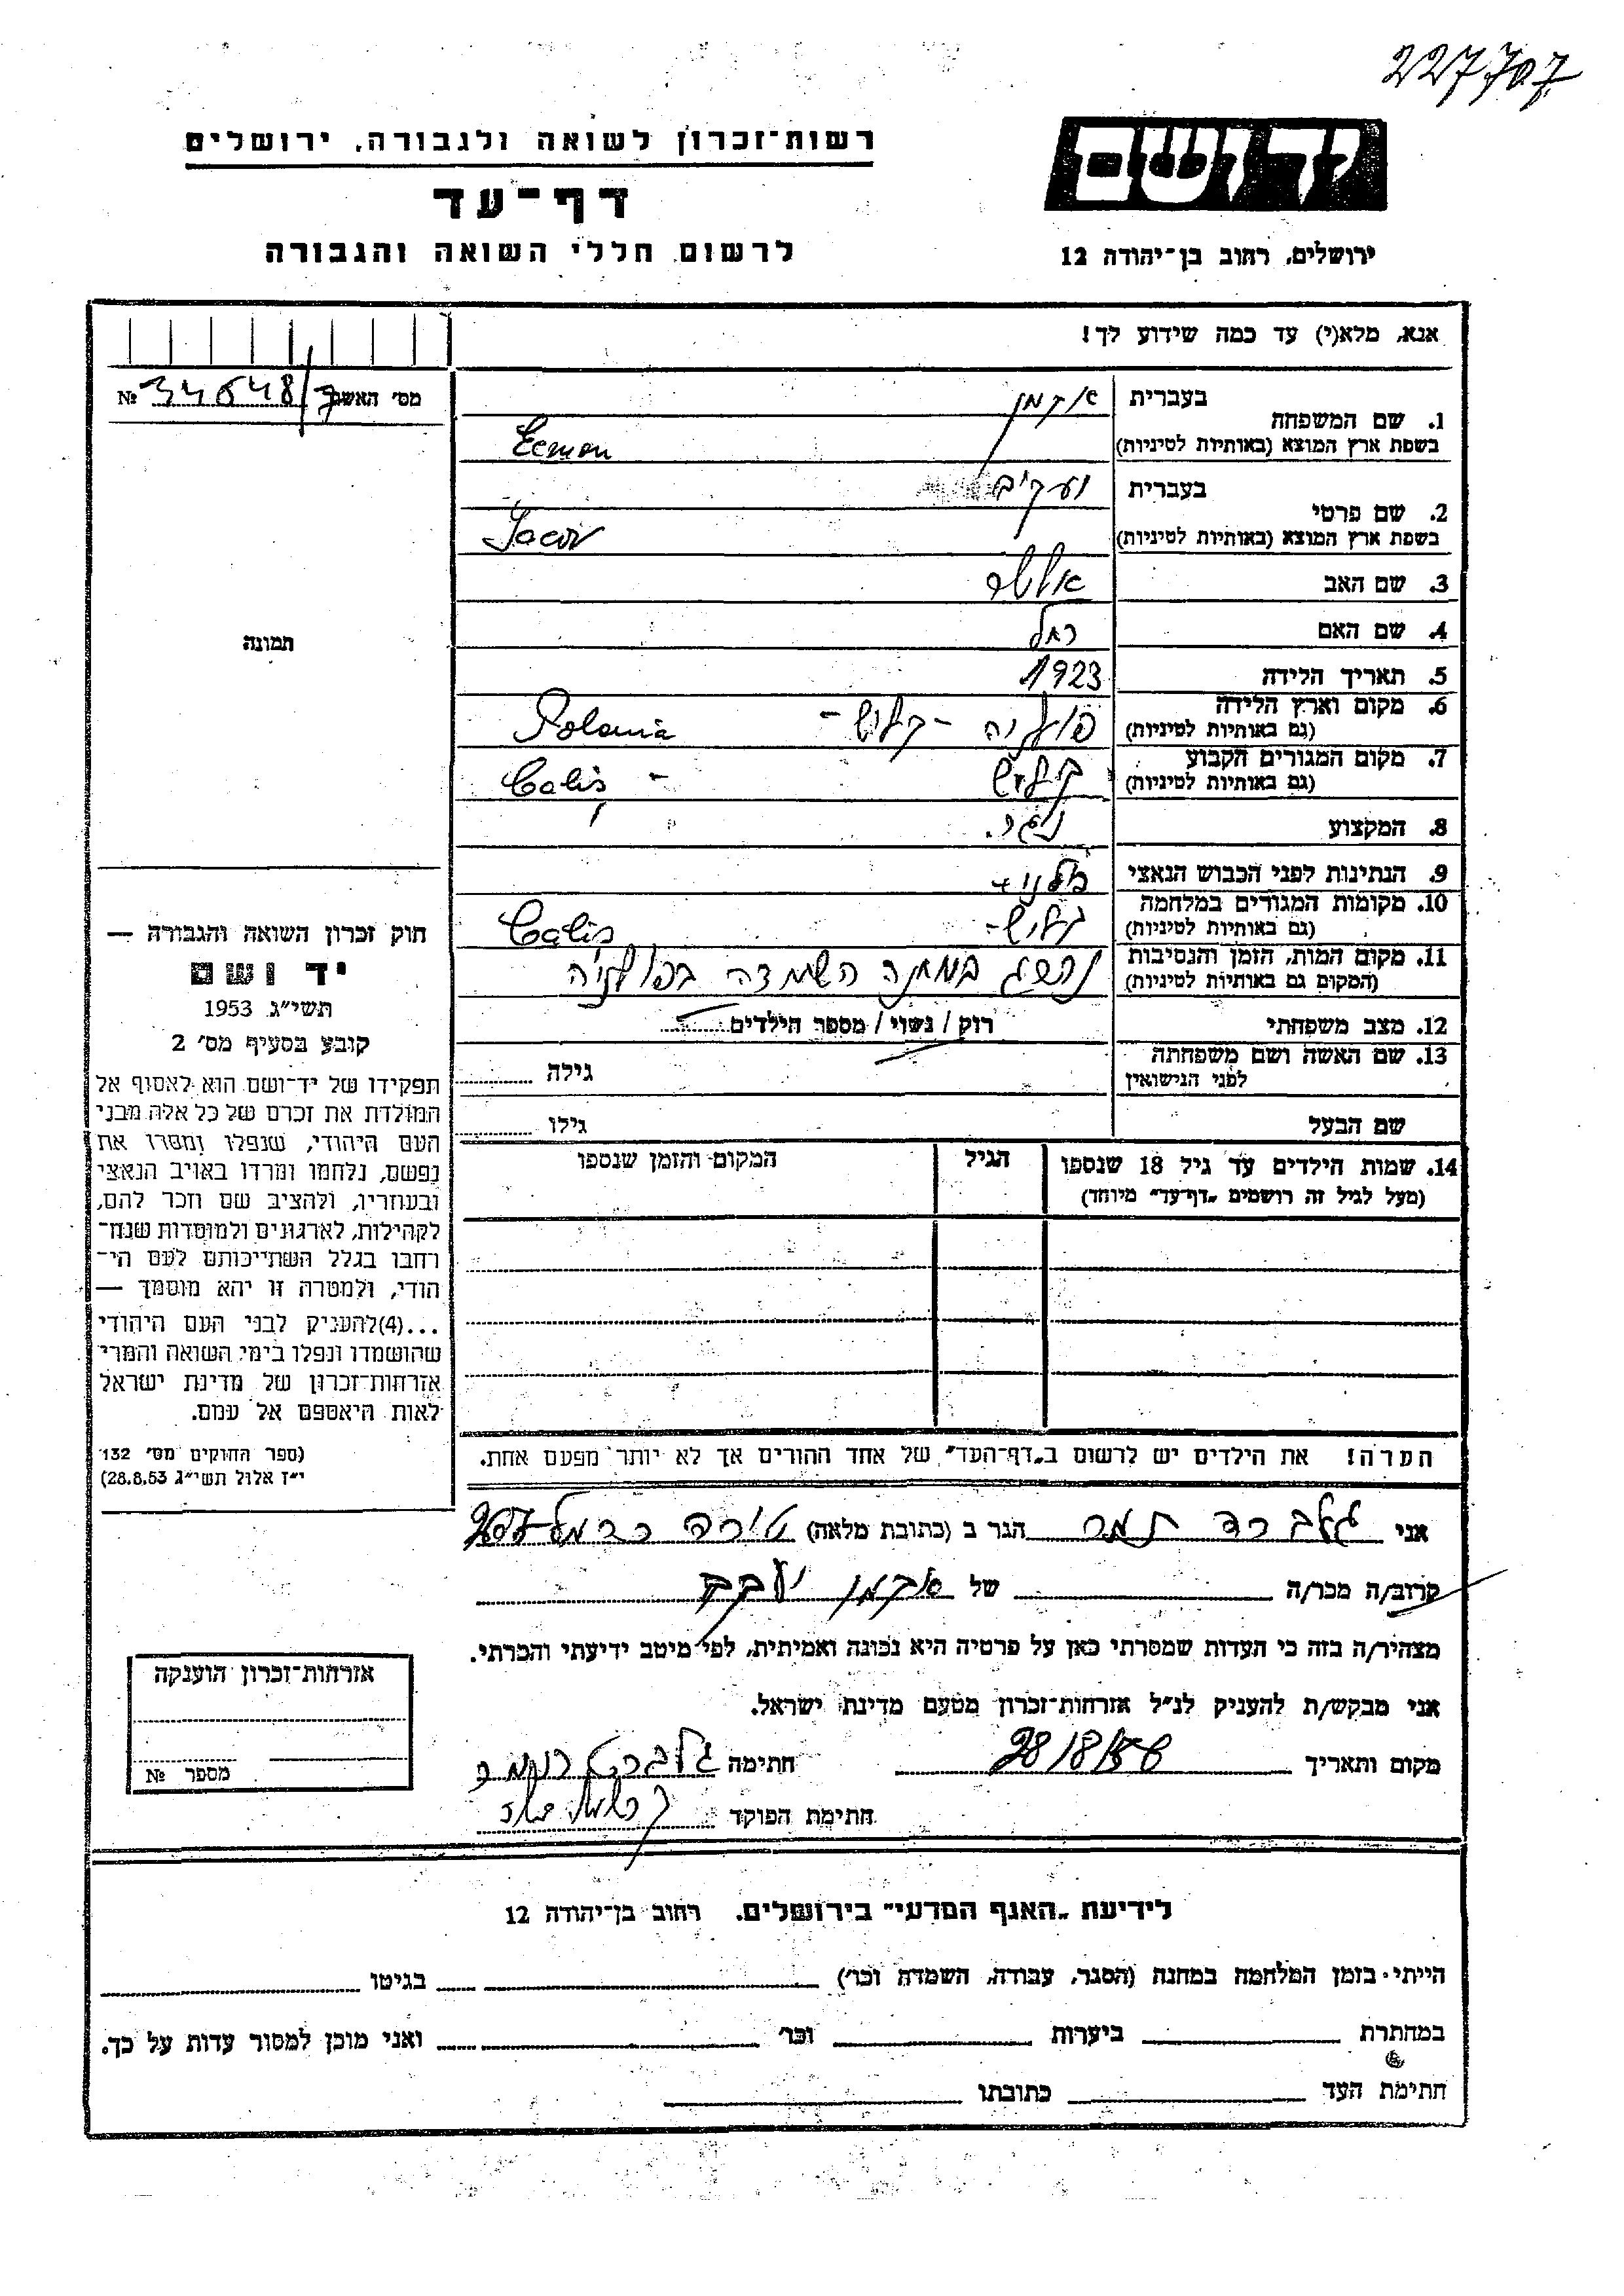 227707
רשות־זכרון לשואה ולגבורה, ירושלים
דף־עד
לרשום חללי השואה והגבורה
יד ושם
ירושלים, רחוב בן־יהודה 12
אנא, מלא(י) עד כמה שידוע לך!
מס׳ האשה № 34648/7
1. שם המשפחה
בעברית אקמן
בשפת ארץ המוצא (באותיות לטיניות) Ecman
2. שם פרטי
בעברית יעקב
בשפת ארץ המוצא (באותיות לטיניות) Jacov
3. שם האב
4. שם האם רחל
5. תאריך הלידה 1923
6. מקום וארץ הלידה פולניה - קליש - Polania
(גם באותיות לטיניות)
7. מקום המגורים הקבוע קליש - Calis
(גם באותיות לטיניות)
8. המקצוע נגר.
9. הנתינות לפני הכבוש הנאצי
10. מקומות המגורים במלחמה קליש - Calis
(גם באותיות לטיניות)
11. מקום המות, הזמן והנסיבות נהרג במחנה השמדה בפולניה
(המקום גם באותיות לטיניות)
12. מצב משפחתי רוק / נשוי / מספר הילדים
13. שם האשה ושם משפחתה
לפני הנישואין גילה
שם הבעל גילו
14. שמות הילדים עד גיל 18 שנספו הגיל המקום והזמן שנספו
(מעל לגיל זה רושמים „דף־עד״ מיוחד)
הערה! את הילדים יש לרשום ב„דף־העד״ של אחד ההורים אך לא יותר מפעם אחת.
תמונה
חוק זכרון השואה והגבורה —
יד ושם
תשי״ג 1953
קובע בסעיף מס׳ 2
תפקידו של יד־ושם הוא לאסוף אל
המולדת את זכרם של כל אלה מבני
העם היהודי, שנפלו ומסרו את
נפשם, נלחמו ומרדו באויב הנאצי
ובעוזריו, ולהציב שם וזכר להם,
לקהילות, לארגונים ולמוסדות שנח־
רחבו בגלל השתייכותם לעם הי־
הודי, ולמטרה זו יהא מוסמך —
...(4)להעניק לבני העם היהודי
שהושמדו ונפלו בימי השואה והמרי
אזרחות־זכרון של מדינת ישראל
לאות היאספם אל עמם.
(ספר החוקים מס׳ 132
י״ז אלול תשי״ג 28.8.53)
אני גלברד תמר הגר ב (כתובת מלאה) טירה כרמל 207
קרוב/ה מכר/ה של אקמן יעקב
מצהיר/ה בזה כי העדות שמסרתי כאן על פרטיה היא נכונה ואמיתית, לפי מיטב ידיעתי והכרתי.
אני מבקש/ת להעניק לנ״ל אזרחות־זכרון מטעם מדינת ישראל.
מקום ותאריך 28/8/56 חתימה גלברד תמר
חתימת הפוקד
אזרחות־זכרון הוענקה
מספר №
לידיעת „האגף המדעי״ בירושלים. רחוב בן־יהודה 12
הייתי בזמן המלחמה במחנה (הסגר, עבודה, השמדה וכר׳) בגיטו
במחתרת ביערות וכר׳ ואני מוכן למסור עדות על כך.
חתימת העד כתובתו